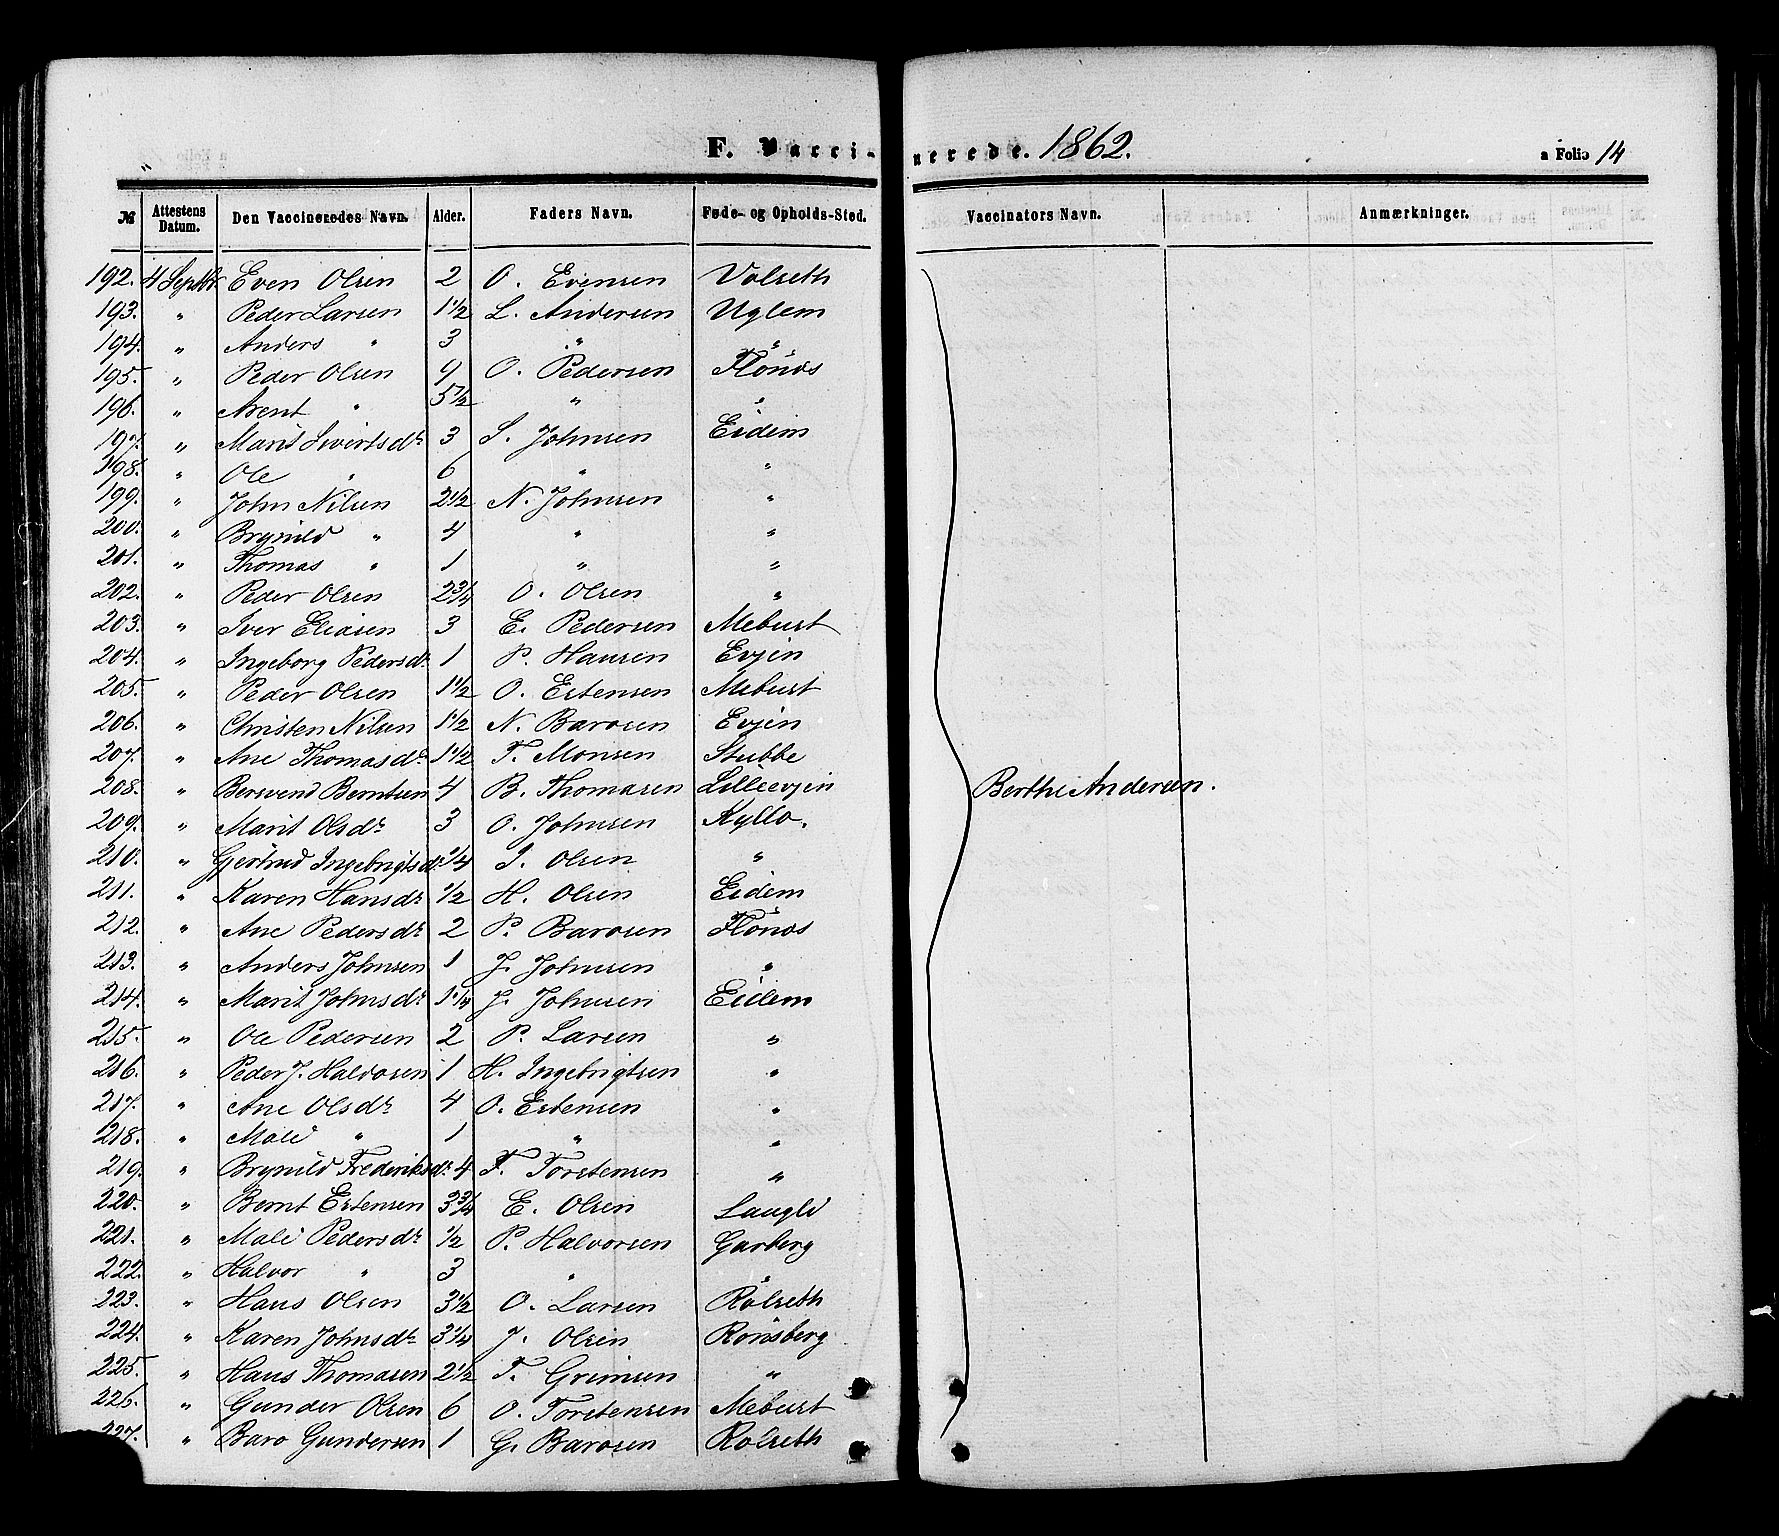 F. Vaccinerede. 1862. a Folio 14
№ Attestens Datum. Den Vaccineredes Navn. Alder. Faders Navn. Føde- og Opholds-Sted. Vaccinators Navn. Anmærkninger.
192. 4 Septbr Even Olsen 2 O. Evensen Volseth
193. " Peder Larsen 1 1/2 L. Andersen Uglem
194. " Anders " 3 " "
195. " Peder Olsen 9 O. Pedersen Flønæs
196. " Arent " 5 1/2 " "
197. " Marit Sivertsdr 3 S. Johnsen Eidem
198. " Ole " 6 " "
199. " John Nilsen 2 1/2 N. Johnsen "
200. " Brynild " 4 " "
201. " Thomas " 1 " "
202. " Peder Olsen 2 3/4 O. Olsen "
203. " Iver Eliasen 3 E. Pedersen Mebust
204. " Ingeborg Pedersdr 1 P. Hansen Evjen
205. " Peder Olsen 1 1/2 O. Estensen Mebust
206. " Christen Nilsen 1 1/2 N. Barosen Evjen
207. " Ane Thomasdr 1 1/2 T. Monsen Stubbe
208. " Bersvend Berntsen 4 B. Thomasen Lilleevjen Berthe Andersen.
209. " Marit Olsdr 3 O. Johnsen Kyllo.
210. " Gjertrud Ingebrigtsdr 1/4 I. Olsen "
211. " Karen Hansdr 1/2 H. Olsen Eidem
212. " Ane Pedersdr 2 P. Barosen Flønæs
213. " Anders Johnsen 1 J. Johnsen "
214. " Marit Johnsdr 1 1/4 J. Johnsen Eidem
215. " Ole Pedersen 2 P. Larsen "
216. " Peder J. Halvorsen 1 H. Ingebrigtsen "
217. " Ane Olsdr 4 O. Estensen "
218. " Mali " 1 " "
219. " Brynild Frederiksdr 4 F. Torstensen "
220. " Bernt Estensen 3 3/4 E. Olsen Laugli
221. " Mali Pedersdr 1/2 P. Halvorsen Garberg
222. " Halvor " 3 " "
223. " Hans Olsen 3 1/2 O. Larsen Rolseth
224. " Karen Johnsdr 3 1/4 J. Olsen Rønsberg
225. " Hans Thomasen 2 1/2 T. Grimsen "
226. " Gunder Olsen 6 O. Torstensen Mebust
227. " Baro Gundersen 1 G. Barosen Rolseth